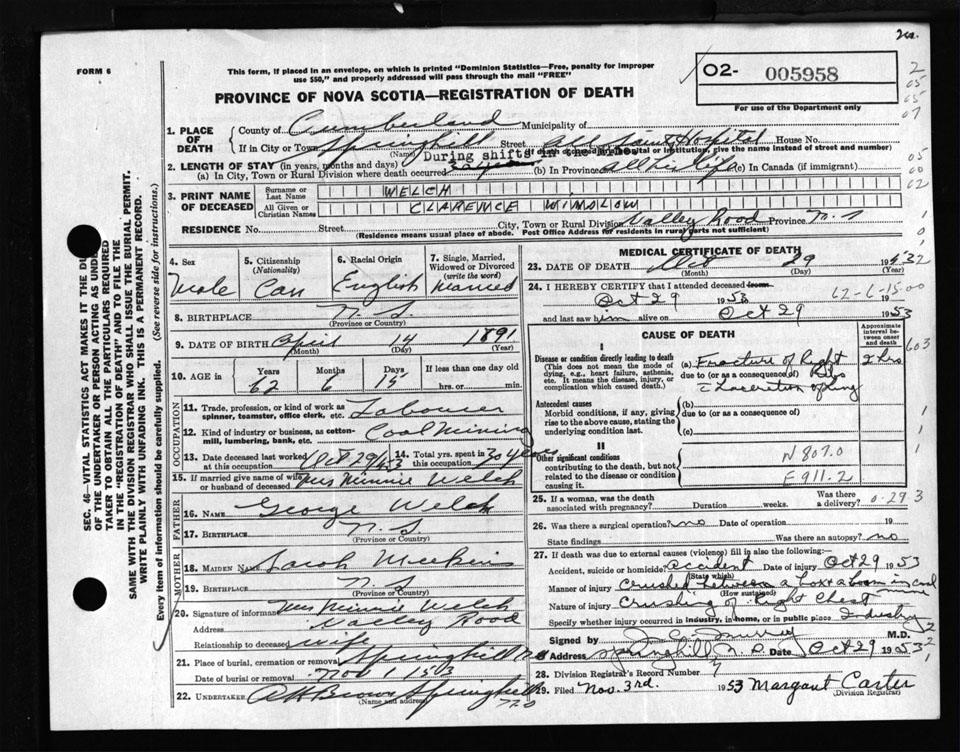 FORM 6
This form, if placed in an envelope, on which is printed "Dominion Statistics—Free, penalty for improper
use $50," and properly addressed will pass through the mail "FREE"
PROVINCE OF NOVA SCOTIA—REGISTRATION OF DEATH
O2- 005958
For use of the Department only
2
05
05
07
1. PLACE OF DEATH
County of Cumberland Municipality of
If in City or Town Springhill Street All Saints Hospital House No.
(Name) hospital or institution, give the name instead of street and number)
During shifts in the mine.
2. LENGTH OF STAY (in years, months and days)
(a) In City, Town or Rural Division where death occurred (b) In Province all his life (c) In Canada (if immigrant)
05
00
02
3. PRINT NAME OF DECEASED
Surname or Last Name WELCH
All Given or Christian Names CLARENCE WINSLOW
RESIDENCE No. Street City, Town or Rural Division Valley Road Province N.S
(Residence means usual place of abode. Post Office Address for residents in rural parts not sufficient)
SEC. 46—VITAL STATISTICS ACT MAKES IT THE
OF THE UNDERTAKER OR PERSON ACTING AS UNDER
TAKER TO OBTAIN ALL THE PARTICULARS REQUIRED
IN THE "REGISTRATION OF DEATH" AND TO FILE THE
SAME WITH THE DIVISION REGISTRAR WHO SHALL ISSUE THE BURIAL PERMIT.
WRITE PLAINLY WITH UNFADING INK. THIS IS A PERMANENT RECORD.
Every item of information should be carefully supplied. (See reverse side for instructions.)
4. Sex Male
5. Citizenship (Nationality) Can
6. Racial Origin English
7. Single, Married, Widowed or Divorced (write the word) Married
8. BIRTHPLACE N.S.
(Province or Country)
9. DATE OF BIRTH April 14 1891
(Month) (Day) (Year)
10. AGE in Years Months Days If less than one day old
62 6 15 hrs. or min.
OCCUPATION
11. Trade, profession, or kind of work as spinner, teamster, office clerk, etc. Labourer
12. Kind of industry or business, as cotton-mill, lumbering, bank, etc. Coal Mining
13. Date deceased last worked at this occupation Oct 29/53
14. Total yrs. spent in this occupation 30 years
15. If married give name of wife or husband of deceased Mrs Minnie Welch
FATHER
16. NAME George Welch
17. BIRTHPLACE N.S
(Province or Country)
MOTHER
18. MAIDEN NAME Sarah
19. BIRTHPLACE N.S
(Province or Country)
20. Signature of informant Mrs Minnie Welch
Address Valley Road
Relationship to deceased wife
21. Place of burial, cremation or removal Springhill N.S
Date of burial or removal Nov 1, 1953
22. UNDERTAKER A H Brown Springhill
(Name and address)
MEDICAL CERTIFICATE OF DEATH
23. DATE OF DEATH Oct 29 1953
(Month) (Day) (Year)
24. I HEREBY CERTIFY that I attended deceased from
Oct 29 1953
62-6-15-00
and last saw him alive on Oct 29 1953
CAUSE OF DEATH
Approximate interval between onset and death
603
I
Disease or condition directly leading to death
(This does not mean the mode of dying, e.g., heart failure, asthenia, etc. It means the disease, injury, or complication which caused death.)
(a) Fracture of Right Ribs 2 hrs
due to (or as a consequence of)
c Laceration of lung
Antecedent causes
Morbid conditions, if any, giving rise to the above cause, stating the underlying condition last.
(b)
due to (or as a consequence of)
(c)
II
Other significant conditions
contributing to the death, but not related to the disease or condition causing it.
N 807.0
E 911.2
25. If a woman, was the death associated with pregnancy? Duration weeks. Was there a delivery?
0-293
26. Was there a surgical operation? no Date of operation 19
State findings Was there an autopsy? no
27. If death was due to external causes (violence) fill in also the following:—
Accident, suicide or homicide? accident Date of injury Oct 29 1953
(State which)
Manner of injury Crushed between a box & boom in coal mine
(How sustained)
Nature of injury Crushing of Right Chest
Specify whether injury occurred in industry, in home, or in public place Industry
Signed by M.D.
Address Springhill N.S. Date Oct 29 1953
28. Division Registrar's Record Number
29. Filed Nov. 3rd. 1953 Margaret Carter
(Division Registrar)